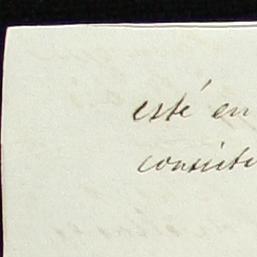 esté en
consiste